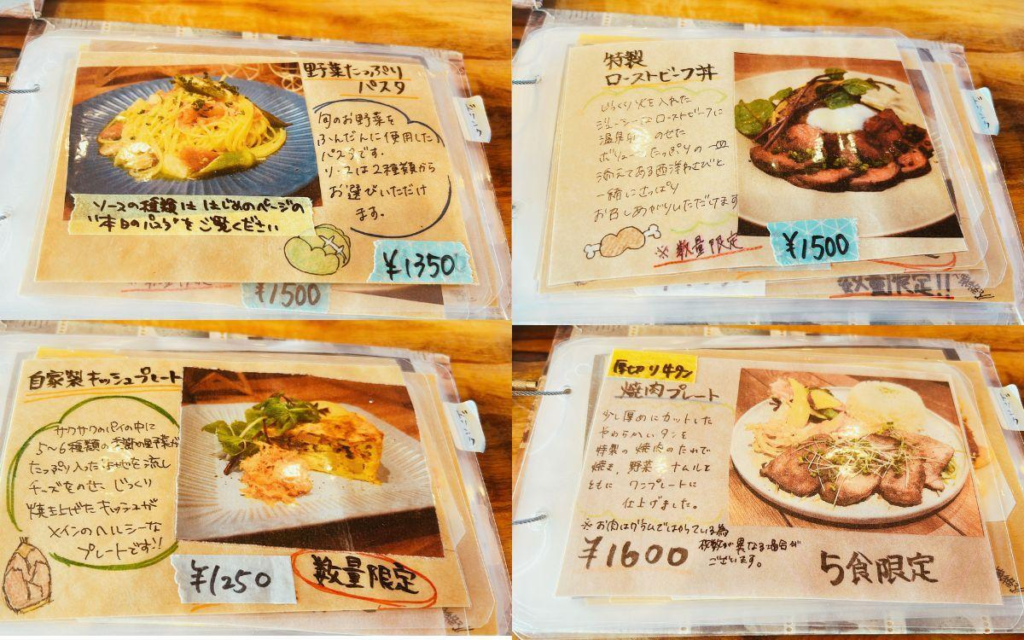 野菜たっぷり
パスタ
旬のお野菜を
ふんだんに使用した
パスタです。
ソースは2種類から
お選びいただけ
ます。
ソースの種類は はじめのページの
"本日のパスタ"をご覧ください
¥1350
¥1500
ドリンク
特製
ローストビーフ丼
じっくり火を入れた
ジューシーなローストビーフに
温泉卵 のせた
ボリュームたっぷりの一皿
添えてある西洋わさびと
一緒にさっぱり
お召しあがりいただけます
※数量限定
¥1500
数量限定!!
ドリンク
自家製キッシュプレート
サクサクのパイの中に
5〜6種類の季節の野菜が
たっぷり入った生地を流し
チーズをのせ じっくり
焼き上げたキッシュが
メインのヘルシーな
プレートです!!
¥1250
数量限定
ドリンク
厚切り牛タン
焼肉プレート
少し厚めにカットした
やわらかいタンを
特製の焼肉のたれで
焼き、野菜、ナムルと
ともに ワンプレートに
仕上げました。
※お肉はグラムではかっている為
枚数が異なる場合が
ございます。
¥1600
5食限定
ドリンク